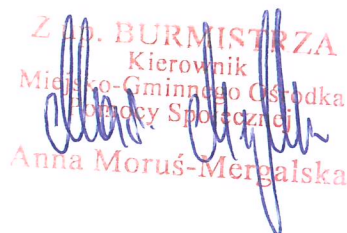 Z up. BURMISTRZA
Kierownik
Miejsko-Gminnego Ośrodka
Pomocy Społecznej
Anna Moruś-Mergalska